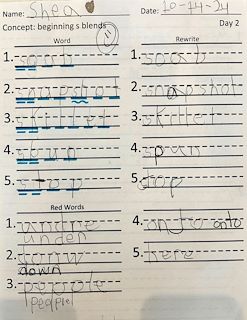 Name: Shea
Date: 10-14-24
Concept: beginning s blends
Day 2
Word
Rewrite
1. soab
1. soab
2. snapshot
2. snapshot
3. skillet
3. skillet
4. spun
4. spun
5. stop
5. stop
Red Words
1. undre
under
4. onto onto
2. donw
down
5. here
3. people
people